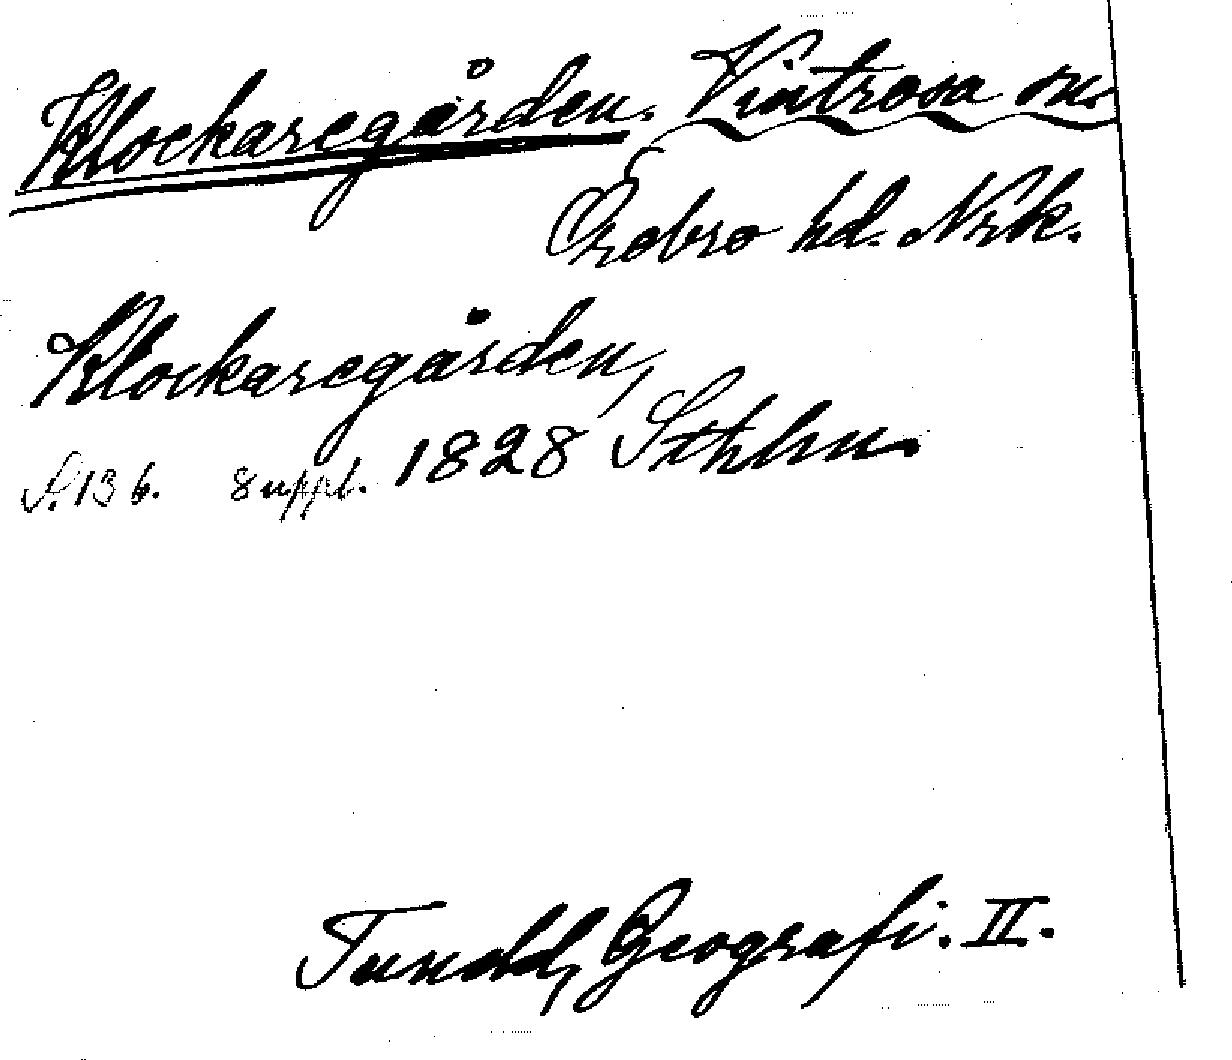 Klockaregården. Vintrosa sn.
Örebro hd. Nrk.
Klockaregården,
S. 136. Suppl. 1828 Sthlm.
Tuneld, Geografi. II.